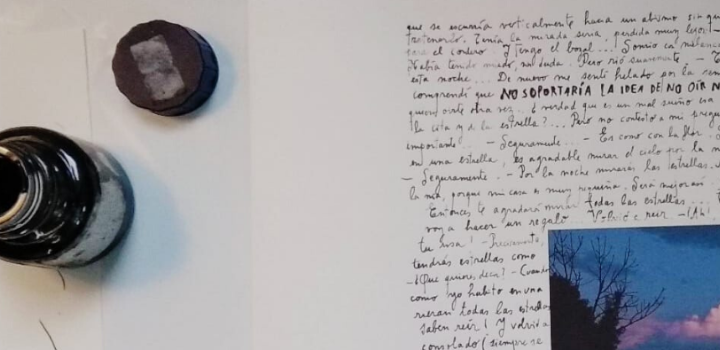 que se escurría verticalmente hacia un abismo sin que
retenerlo. Tenía la mirada seria, perdida muy lejos! –
para el cordero. Y tengo el bozal... Sonrió con melancol
Había tenido miedo, sin duda. Pero rió suavemente. –
esta noche... De nuevo me sentí helado por la
comprendí que NO SOPORTARÍA LA IDEA DE NO OIR N
quiero oirte otra vez... ¿verdad que es un mal sueño
la cita y de la estrella?... Pero no contestó a mi pregu
importante – Seguramente... – Es como con la flor.
en una estrella, es agradable mirar el cielo por la n
– Seguramente. – Por la noche mirarás las estrellas.
la mía, porque mi casa es muy pequeña. Será mejor así.
Entonces te agradará mirar todas las estrellas...
voy a hacer un regalo... Volvió a reir. – ¡Ah!
tu risa! – Precisamente,
tendrás estrellas como
– ¿Qué quieres decir? – Cuando
como yo habito en una
rieran todas las estrellas
saben reír! Y volvió a
consolado (siempre se